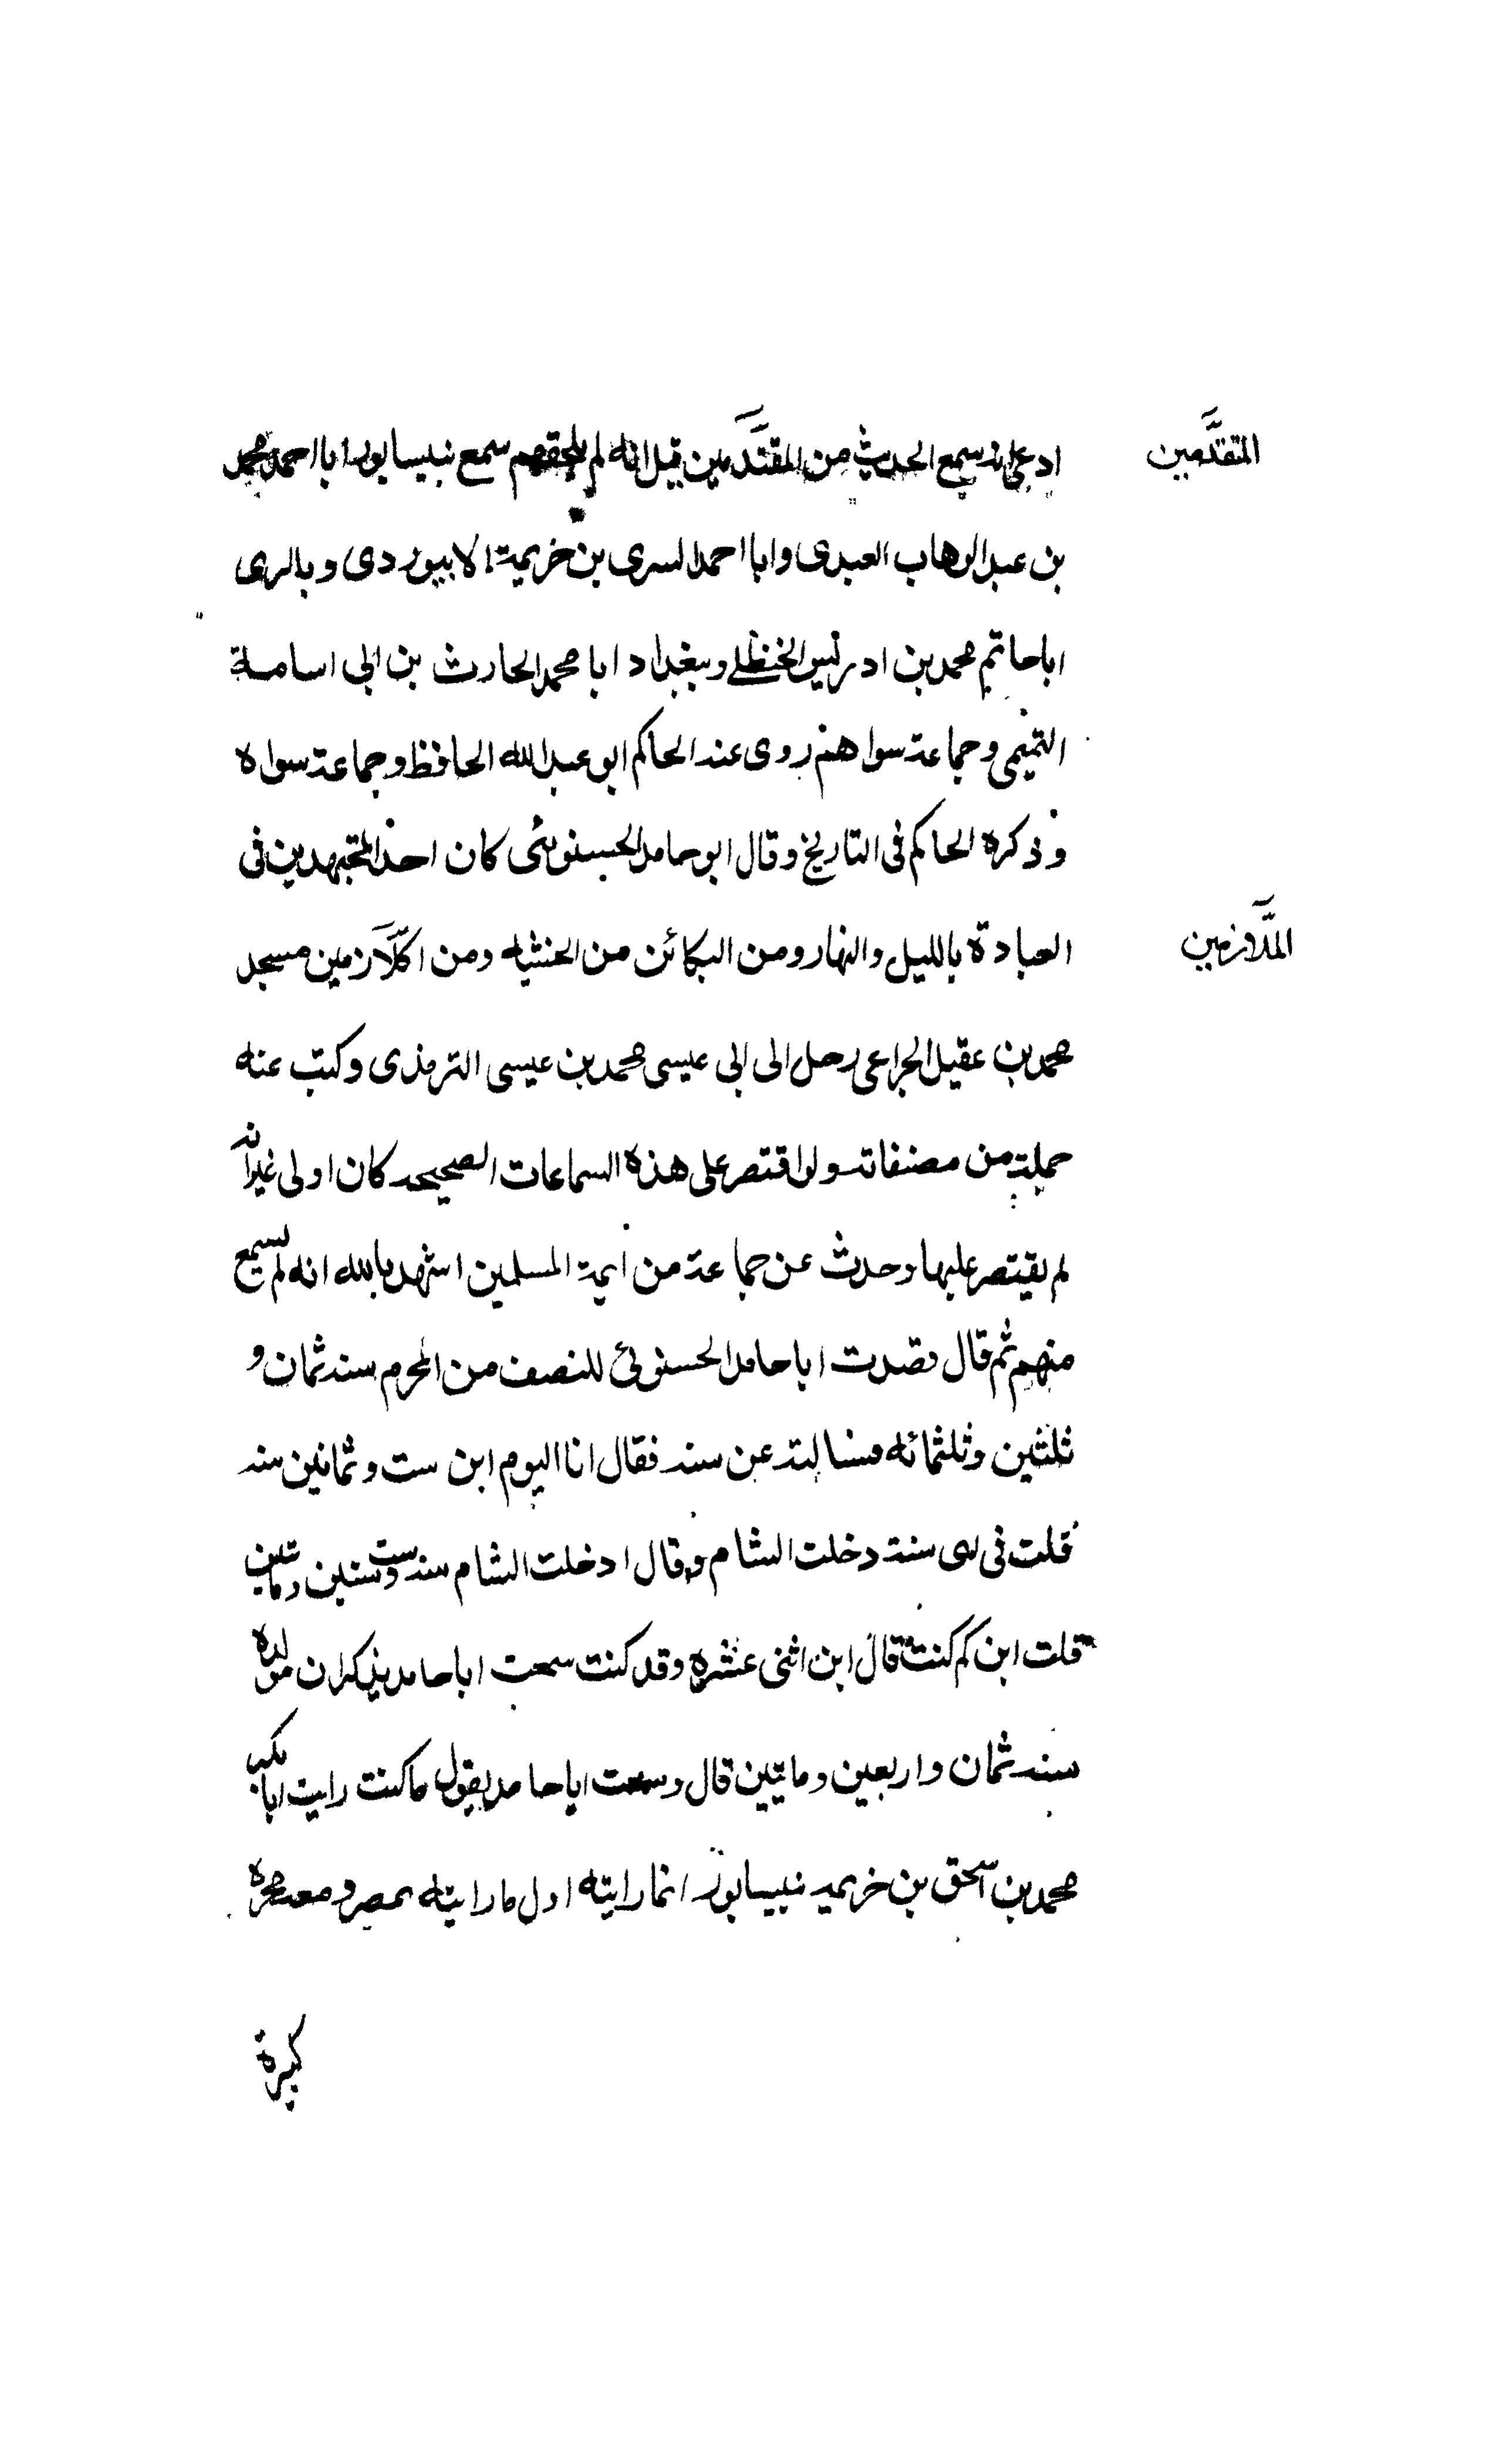 المتقدَّمين
ادعى انه سمع الحديث من المقتدَّمين قيل انه لم يلحقهم سمع نبيسابور ابا احمد محمد
بن عبد الوهاب العبدى وابا احمد السرى بن خزيمة الابيوردى وبالرى
اباحاتم محمد بن ادريس الحنظلے وببغداد ابا محمد الحارث بن ابى اسامة
التميمى وجماعة سواهم روى عنه الحاكم ابو عبد الله الحافظ وجماعة سواه
وذكره الحاكم فى التاريخ وقال ابو حامد الحسنوئى كان احد المجتهدين فى
العبادة بالليل والنهار ومن البكائن من الخشية ومن اكلَّازمين مسجد
الملَّازمين
محمد بن عقيل الجزاعى رحل الى ابى عيسى محمد بن عيسى الترمذى وكتب عنه
جملة من مصنفاته ولو اقتصر على هذه السماعات الصحيحه كان اولى غير انه
لم يقتصر عليها وحدث عن جماعة من ايمة المسلمين اشهد بالله انه لم يسمع
منهم ثم قال قصدت اباحامد الحسنوئى للنصف من المحرم سنه ثمان و
ثلثين وثلثمائه فسالته عن سنه فقال انا اليوم ابن ست وثمانين سنه
قلت فى اى سنة دخلت الشام وقال ادخلت الشام سنه ست وستين ومايتين
قلت ابن كم كنت قال ابن اثنى عشره وقد كنت سمعت اباحامد يذكران مولده
سنه ثمان واربعين ومايتين قال وسمعت اباحامد يقول ماكنت رايت ابا بكر
محمد بن اسحق بن خزيمه نبيسابور انما رايته اول مارايته بمصر ومعه محبرة
كبيرة